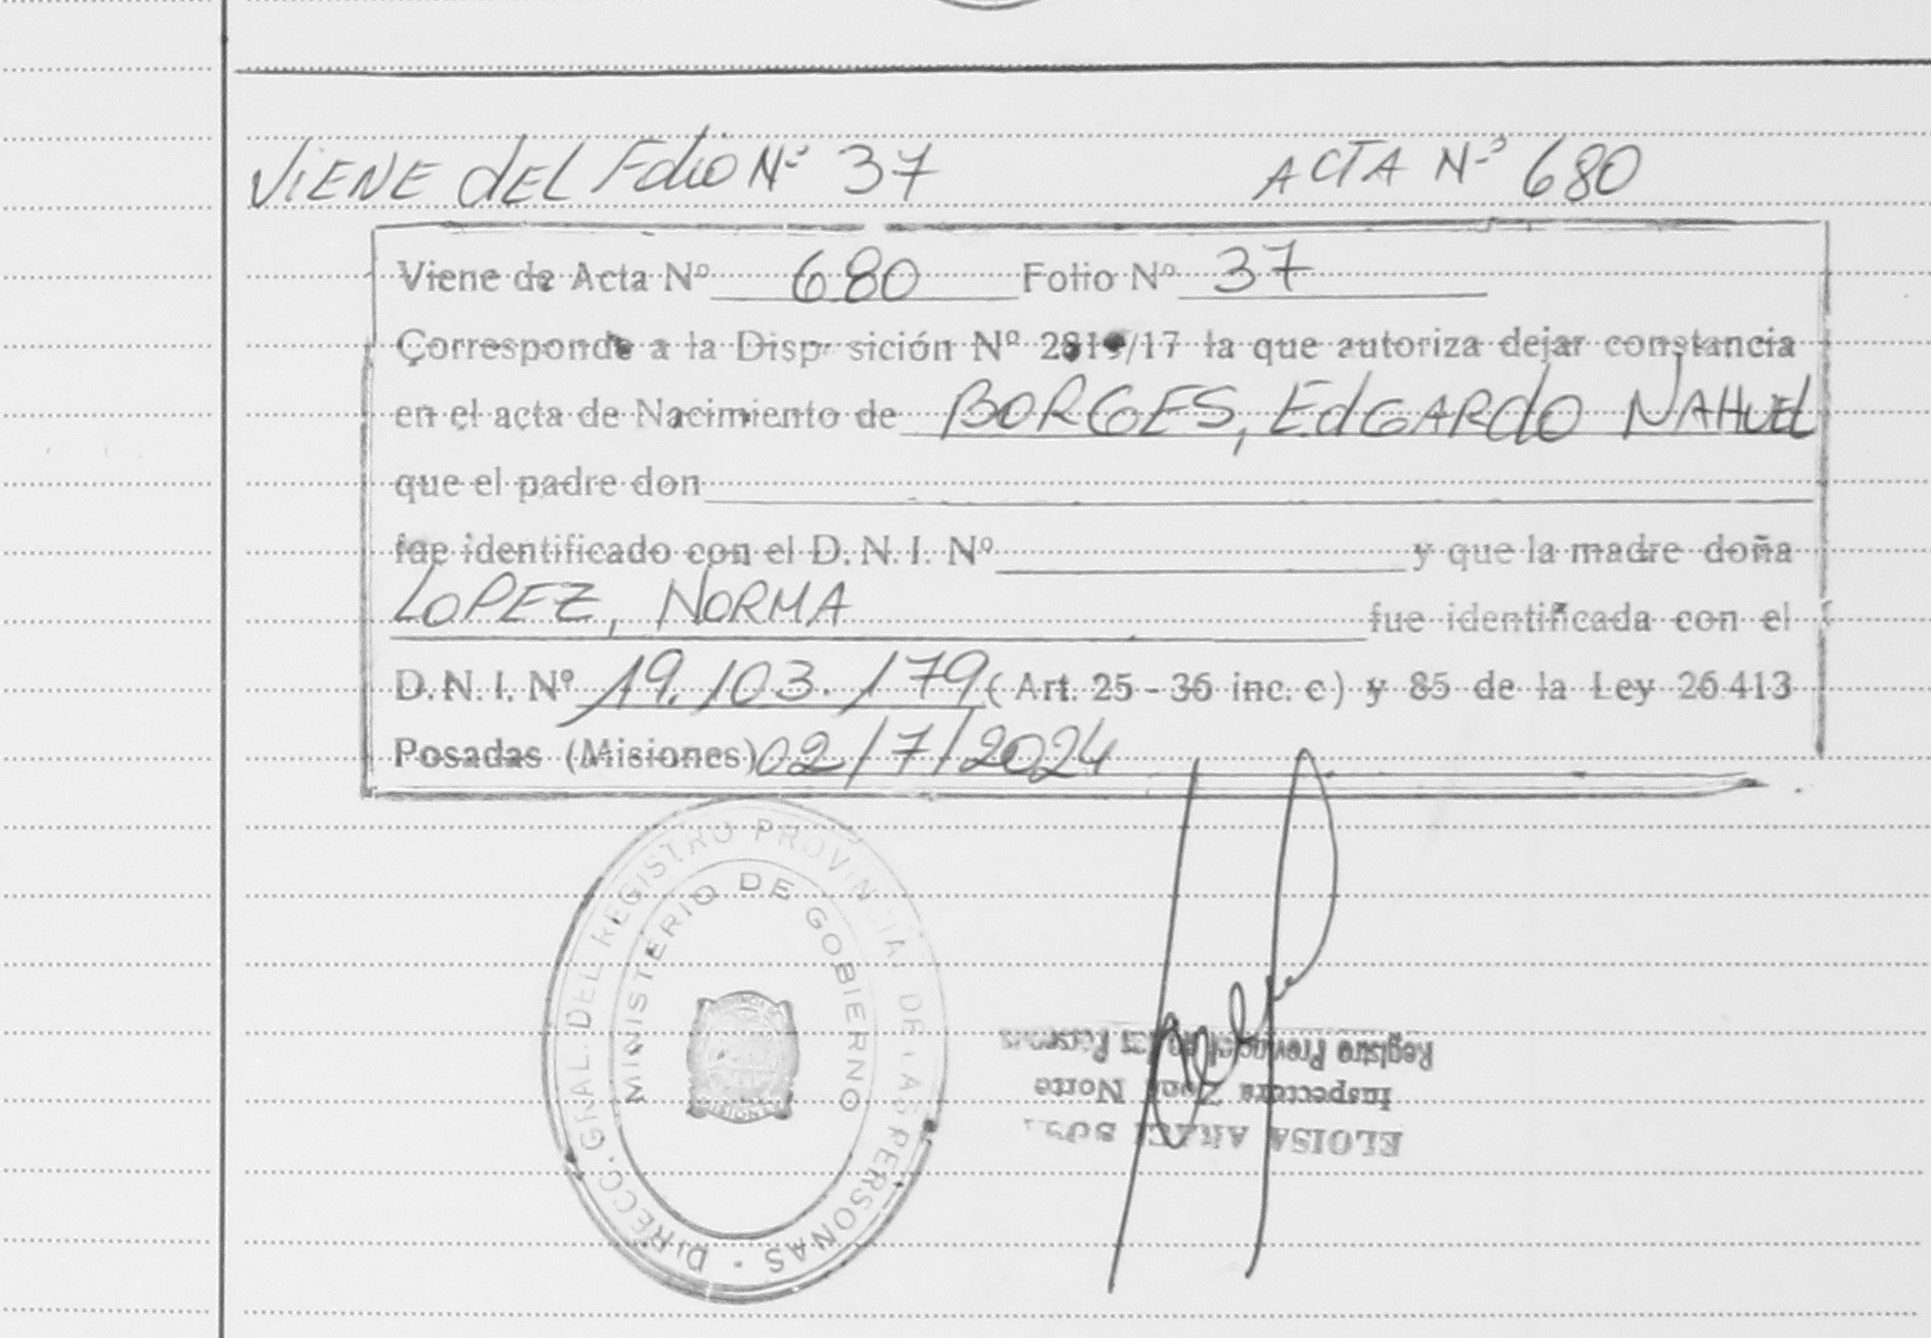 ViENE dEL Folio Nº 37 ACTA Nº 680
Viene de Acta Nº 680 Folio Nº 37
Corresponde a la Disp sición Nº /17 la que autoriza dejar constancia
en el acta de Nacimiento de BORGES, EdGARdO NAHUEL
que el padre don
fue identificado con el D. N. I. Nº y que la madre doña
LOPEZ, NORMA fue identificada con el
D. N. I. Nº 19.103.179 ( Art. 25 - 36 inc. c ) y 85 de la Ley 26.413
Posadas (Misiones) 02/7/2024
DIRECC. GRAL. DEL REGISTRO PROVINCIAL DE LAS PERSONAS
MINISTERIO DE GOBIERNO
ELOISA
Inspectora Zona Norte
Registro Provincial de las Personas